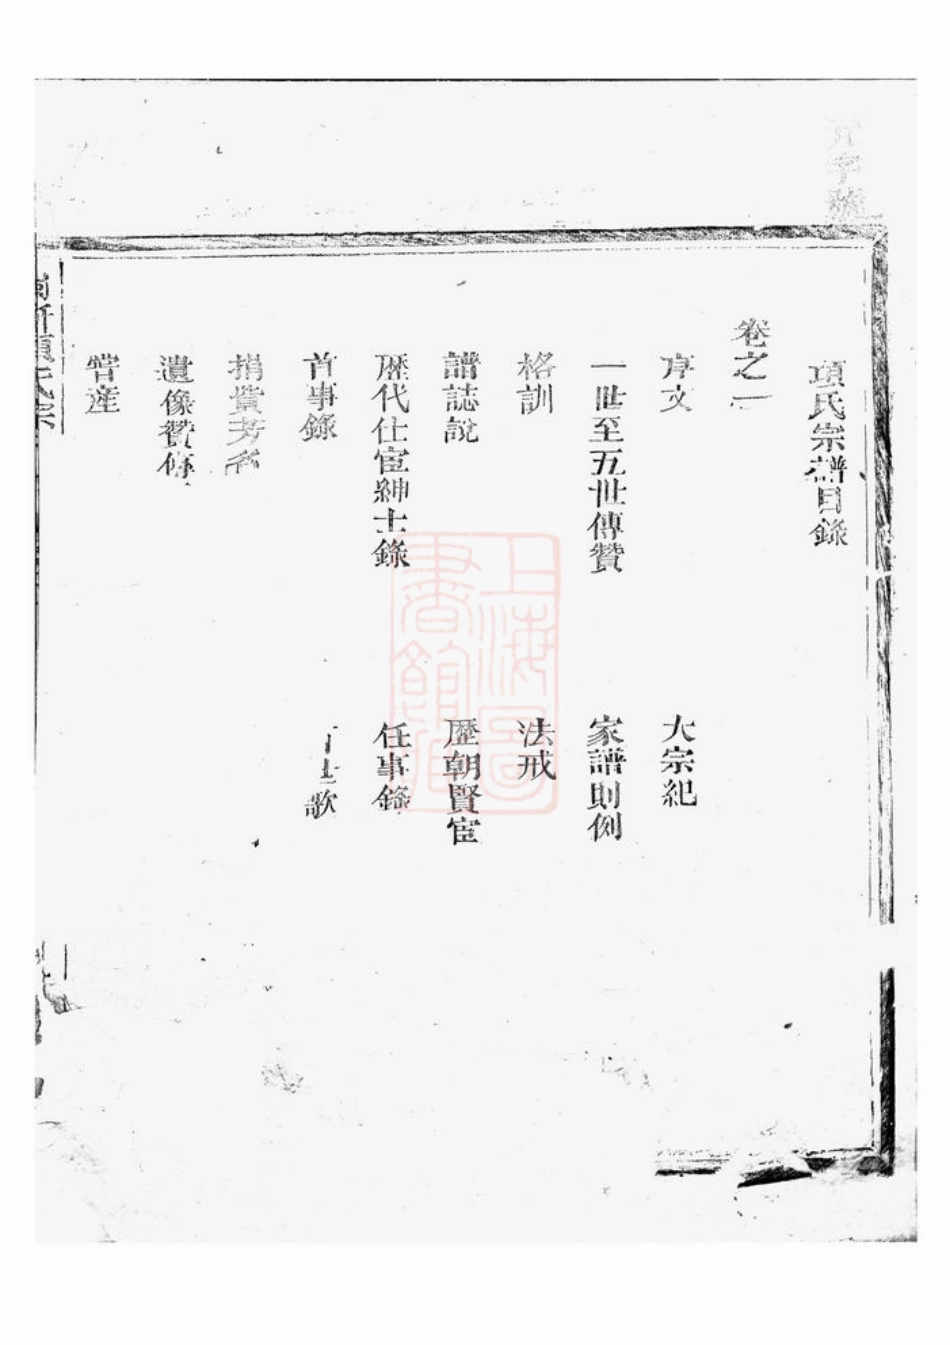 項氏宗譜目錄
卷之一
序文 大宗紀
一世至五世傳贊 家譜則例
格訓 法戒
譜誌說 歷朝賢宦
歷代仕宦紳士錄 任事錄
首事錄 歌
捐貲芳名
遺像贊傳
嘗産
項氏宗
上海圖書館藏